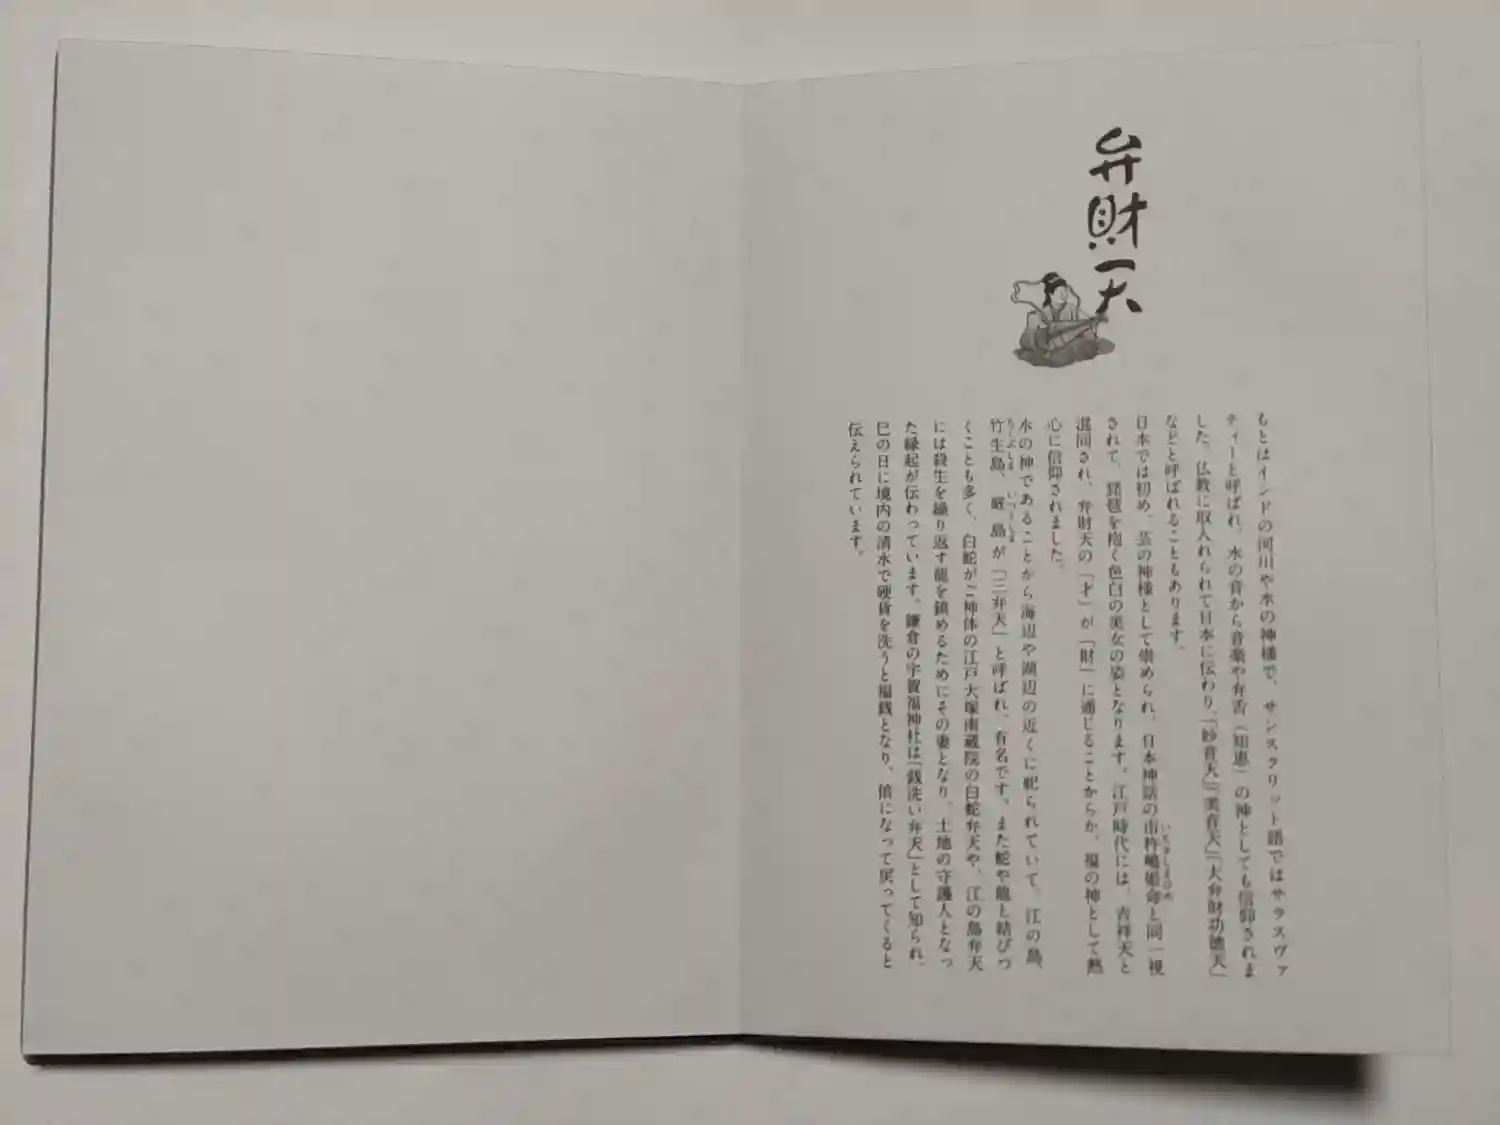 弁財天
もとはインドの河川や水の神様で、サンスクリット語ではサラスヴァ
ティーと呼ばれ、水の音から音楽や弁舌(知恵)の神としても信仰されま
した。仏教に取入れられて日本に伝わり、「妙音天」「美音天」「大弁財功徳天」
などと呼ばれることもあります。
日本では初め、芸の神様として崇められ、日本神話の市杵嶋姫命と同一視
いちきしまひめ
されて、琵琶を抱く色白の美女の姿となります。江戸時代には、吉祥天と
混同され、弁財天の「才」が「財」に通じることからか、福の神として熱
心に信仰されました。
水の神であることから海辺や湖辺の近くに祀られていて、江の島、
竹生島、厳島が「三弁天」と呼ばれ、有名です。また蛇や龍と結びつ
いつくしま
くことも多く、白蛇がご神体の江戸大塚南蔵院の白蛇弁天や、江の島弁天
には殺生を繰り返す龍を鎮めるためにその妻となり、土地の守護人となっ
た縁起が伝わっています。鎌倉の宇賀福神社は「銭洗い弁天」として知られ、
巳の日に境内の清水で硬貨を洗うと福銭となり、倍になって戻ってくると
伝えられています。